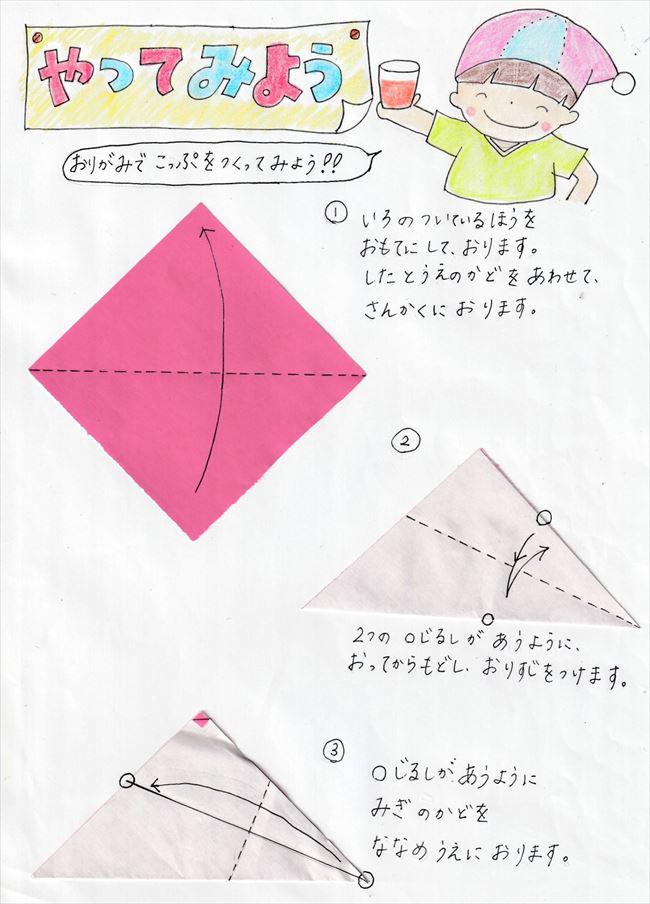 やってみよう
おりがみで こっぷをつくってみよう!!
① いろのついているほうを
おもてにして、おります。
したとうえのかどをあわせて、
さんかくに おります。
②
2つの ○じるしが あうように、
おってからもどし、おりすじをつけます。
③ ○じるしが あうように
みぎのかどを
ななめ うえに おります。